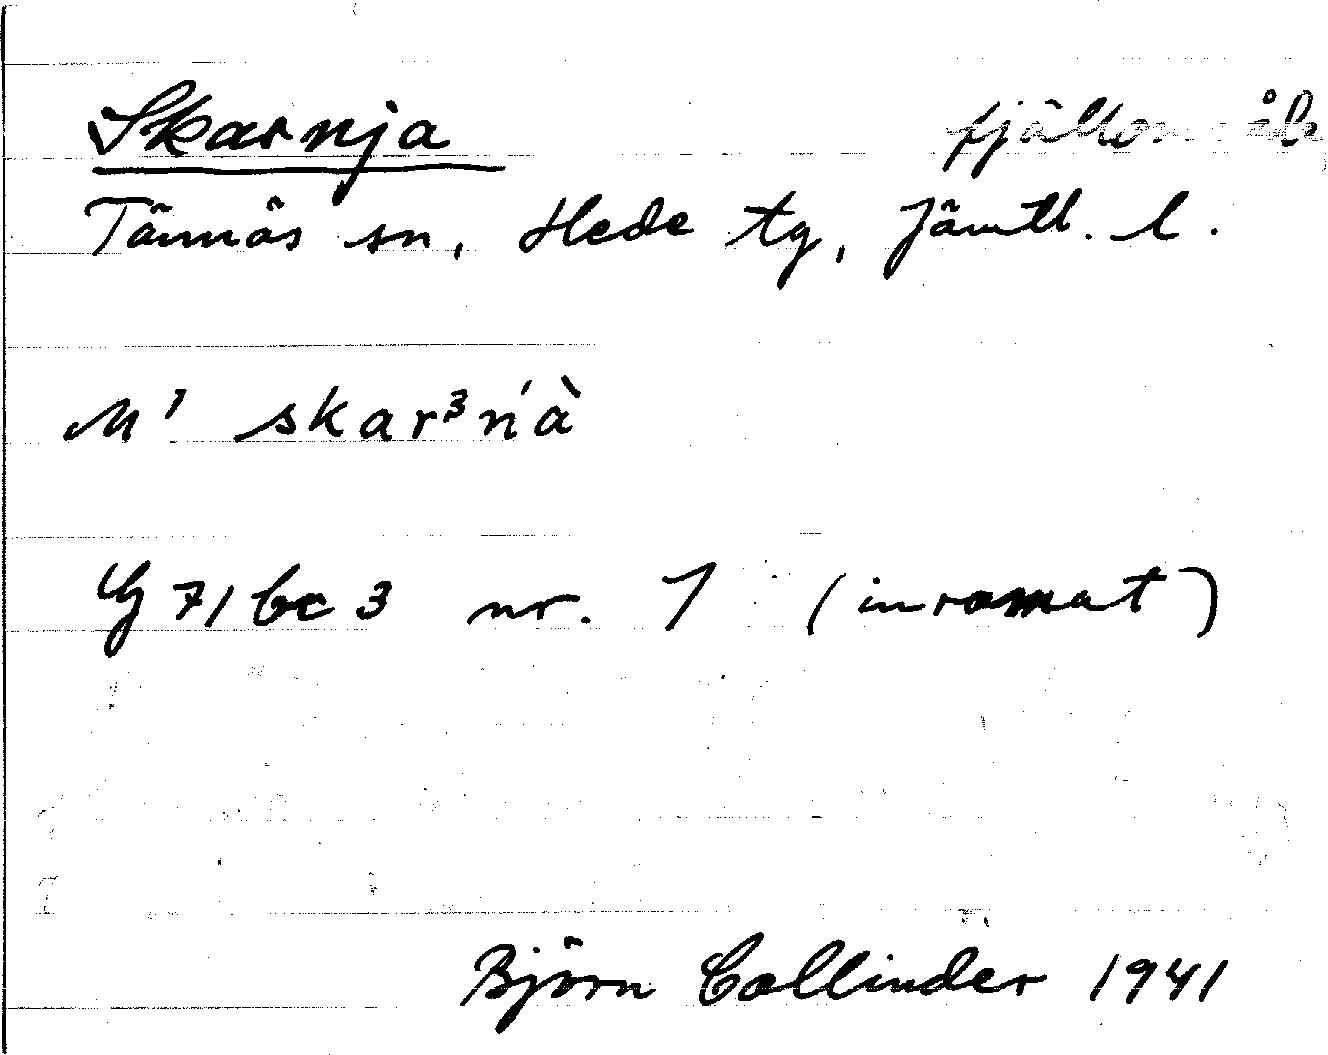 Skarnja fjällområde
Tännäs sn, Hede tg, Jämtl. l.
M' skar³ń'à
G 71 bc 3 nr. 1 (inramat)
Björn Collinder 1941